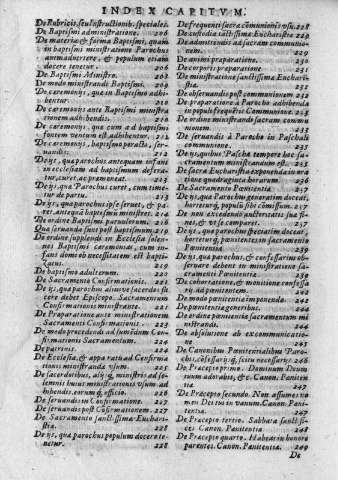 INDEX CAPITVM.
De Rubricis, seu Instructionib. speciale.
De Baptismi administratione. 206
De materia, & forma Baptismi, quam
in baptismi ministratione Parochus
animaduertere, & populum etiam
docere tenetur. 206
De Baptismi Ministro. 208
De modo ministrandi Baptismi. 209
De cæremonijs, quæ in Baptismo adhibentur. 210
De cæremonijs ante Baptismi ministrationem adhibendis. 210
De cæremonijs, quæ cum ad baptismi
fontem ventum est, adhibentur. 212
De cæremonijs, baptismo peracto, seruandis. 212
De ijs, quæ parochus antequam infans
in ecclesiam ad baptismum deferatur, curet, ac præmoneat. 213
De ijs, quæ Parochus curet, cum
De ijs, quæ parochus ipse seruet, & paret
De ordine Baptismi paruulorum. 218
Qua seruanda sunt post baptismum. 219
De ordine supplendi in Ecclesia solennes Baptismi cæremonias, cum infans domo ob necessitatem est baptizatus.
De baptismo adulterum. 220
De Sacramento Confirmationis. 221
De Præparatione ante ministrationem
Sacramenti Confirmationis. 223
De patrinis. 224
De Ecclesia, & apparatu ad Confirmationis ministranda vsum. 225
De sacerdotibus, alijsq́; ministris ad solemnis huius ministrationis vsum adhibendis, eorumq́; officio. 226
De seruandis in Confirmatione. 227
De seruandis post Confirmationem. 227
De Sacramento sanctissimæ Eucharistiæ. 228
De ijs, quæ parochus populum docere tenetur. 228
De frequenti sacræ communionis vsu. 228
De custodia sanctissimæ Eucharistiæ
De admittendis ad sacram communionem. 229
De animi præparatione.
De corporis præparatione. 231
De ministratione sanctissima Eucharistia. 231
De obseruandis post communionem 232
De præparatione a Parocho adhibenda
in populi frequenti Communione. 233
De ordine ministrandi sacram communionem. 233
De seruandis à Parocho in Paschali
communione. 235
De ijs, quibus Pascha tempore hoc sacramentum ministrandum est. 235
De sacra Eucharistia exponenda in oratione quadraginta horarum. 237
De Sacramento Pænitentia. 237
De ijs, quæ Parochus generatim doceat,
hortetur q́; populũ sibi cõmissum. 238
De ijs, quæ parochus speciatim doceat,
hortetur q́; pænitentes, in sacramento
Pænitentiæ. 239
De ijs, quæ parochus, & confessarius obseruare debent in ministratione sacramenti Pænitentia.
De cohortatione, & monitione confessarij ad pænitentem. 242
De modo pænitentia imponenda. 242
De pænitentia generibus. 242
De ordine Pænitentiæ sacramentum ministrandi. 244
De absolutione ab excommunicatione
De Canonibus Pænitentialibus Parochis, confessarijsq́; scitu necessarijs. 246
De Præcepto primo. Dominum Deum
tuum adorabis, &c. Canon. Pænitentia 247
De Præcepto secundo. Non assumes nomen Dei tui in vanum. Canon. Pænitentia. 247
De Præcepto tertio. Sabbata sanctifices Canon. Pænitentia. 248
De Præcepto quarto. Habeas in honore
parentes. Canon. Pænitentia. 249
De